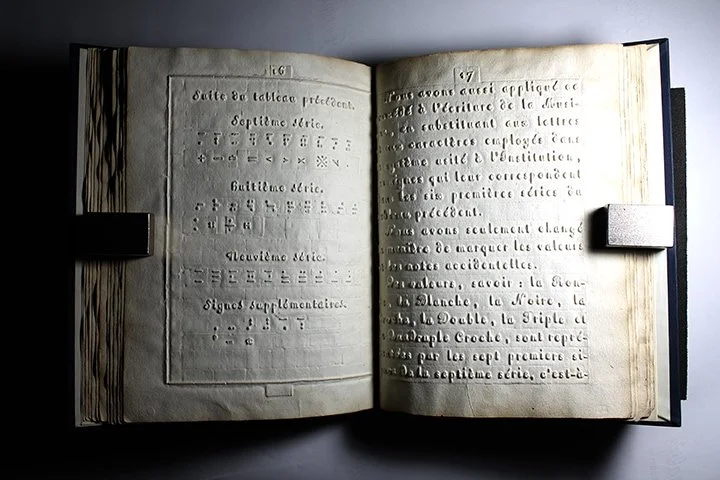 16
Suite du tableau précédent.
Septième série.
+ = < > ※ √
Huitième série.
Neuvième série.
Signes supplémentaires.
17
Nous avons aussi appliqué ce
à l'écriture de la Musi-
en substituant aux lettres
caractères employés dans
système usité à l'Institution,
signes qui leur correspondent
les six premières séries du
précédent.
Nous avons seulement changé
manière de marquer les valeurs
notes accidentelles.
valeurs, savoir : la Ron-
la Blanche, la Noire, la
la Double, la Triple et
Quadruple Croche, sont repré-
par les sept premiers si-
de la septième série, c'est-à-